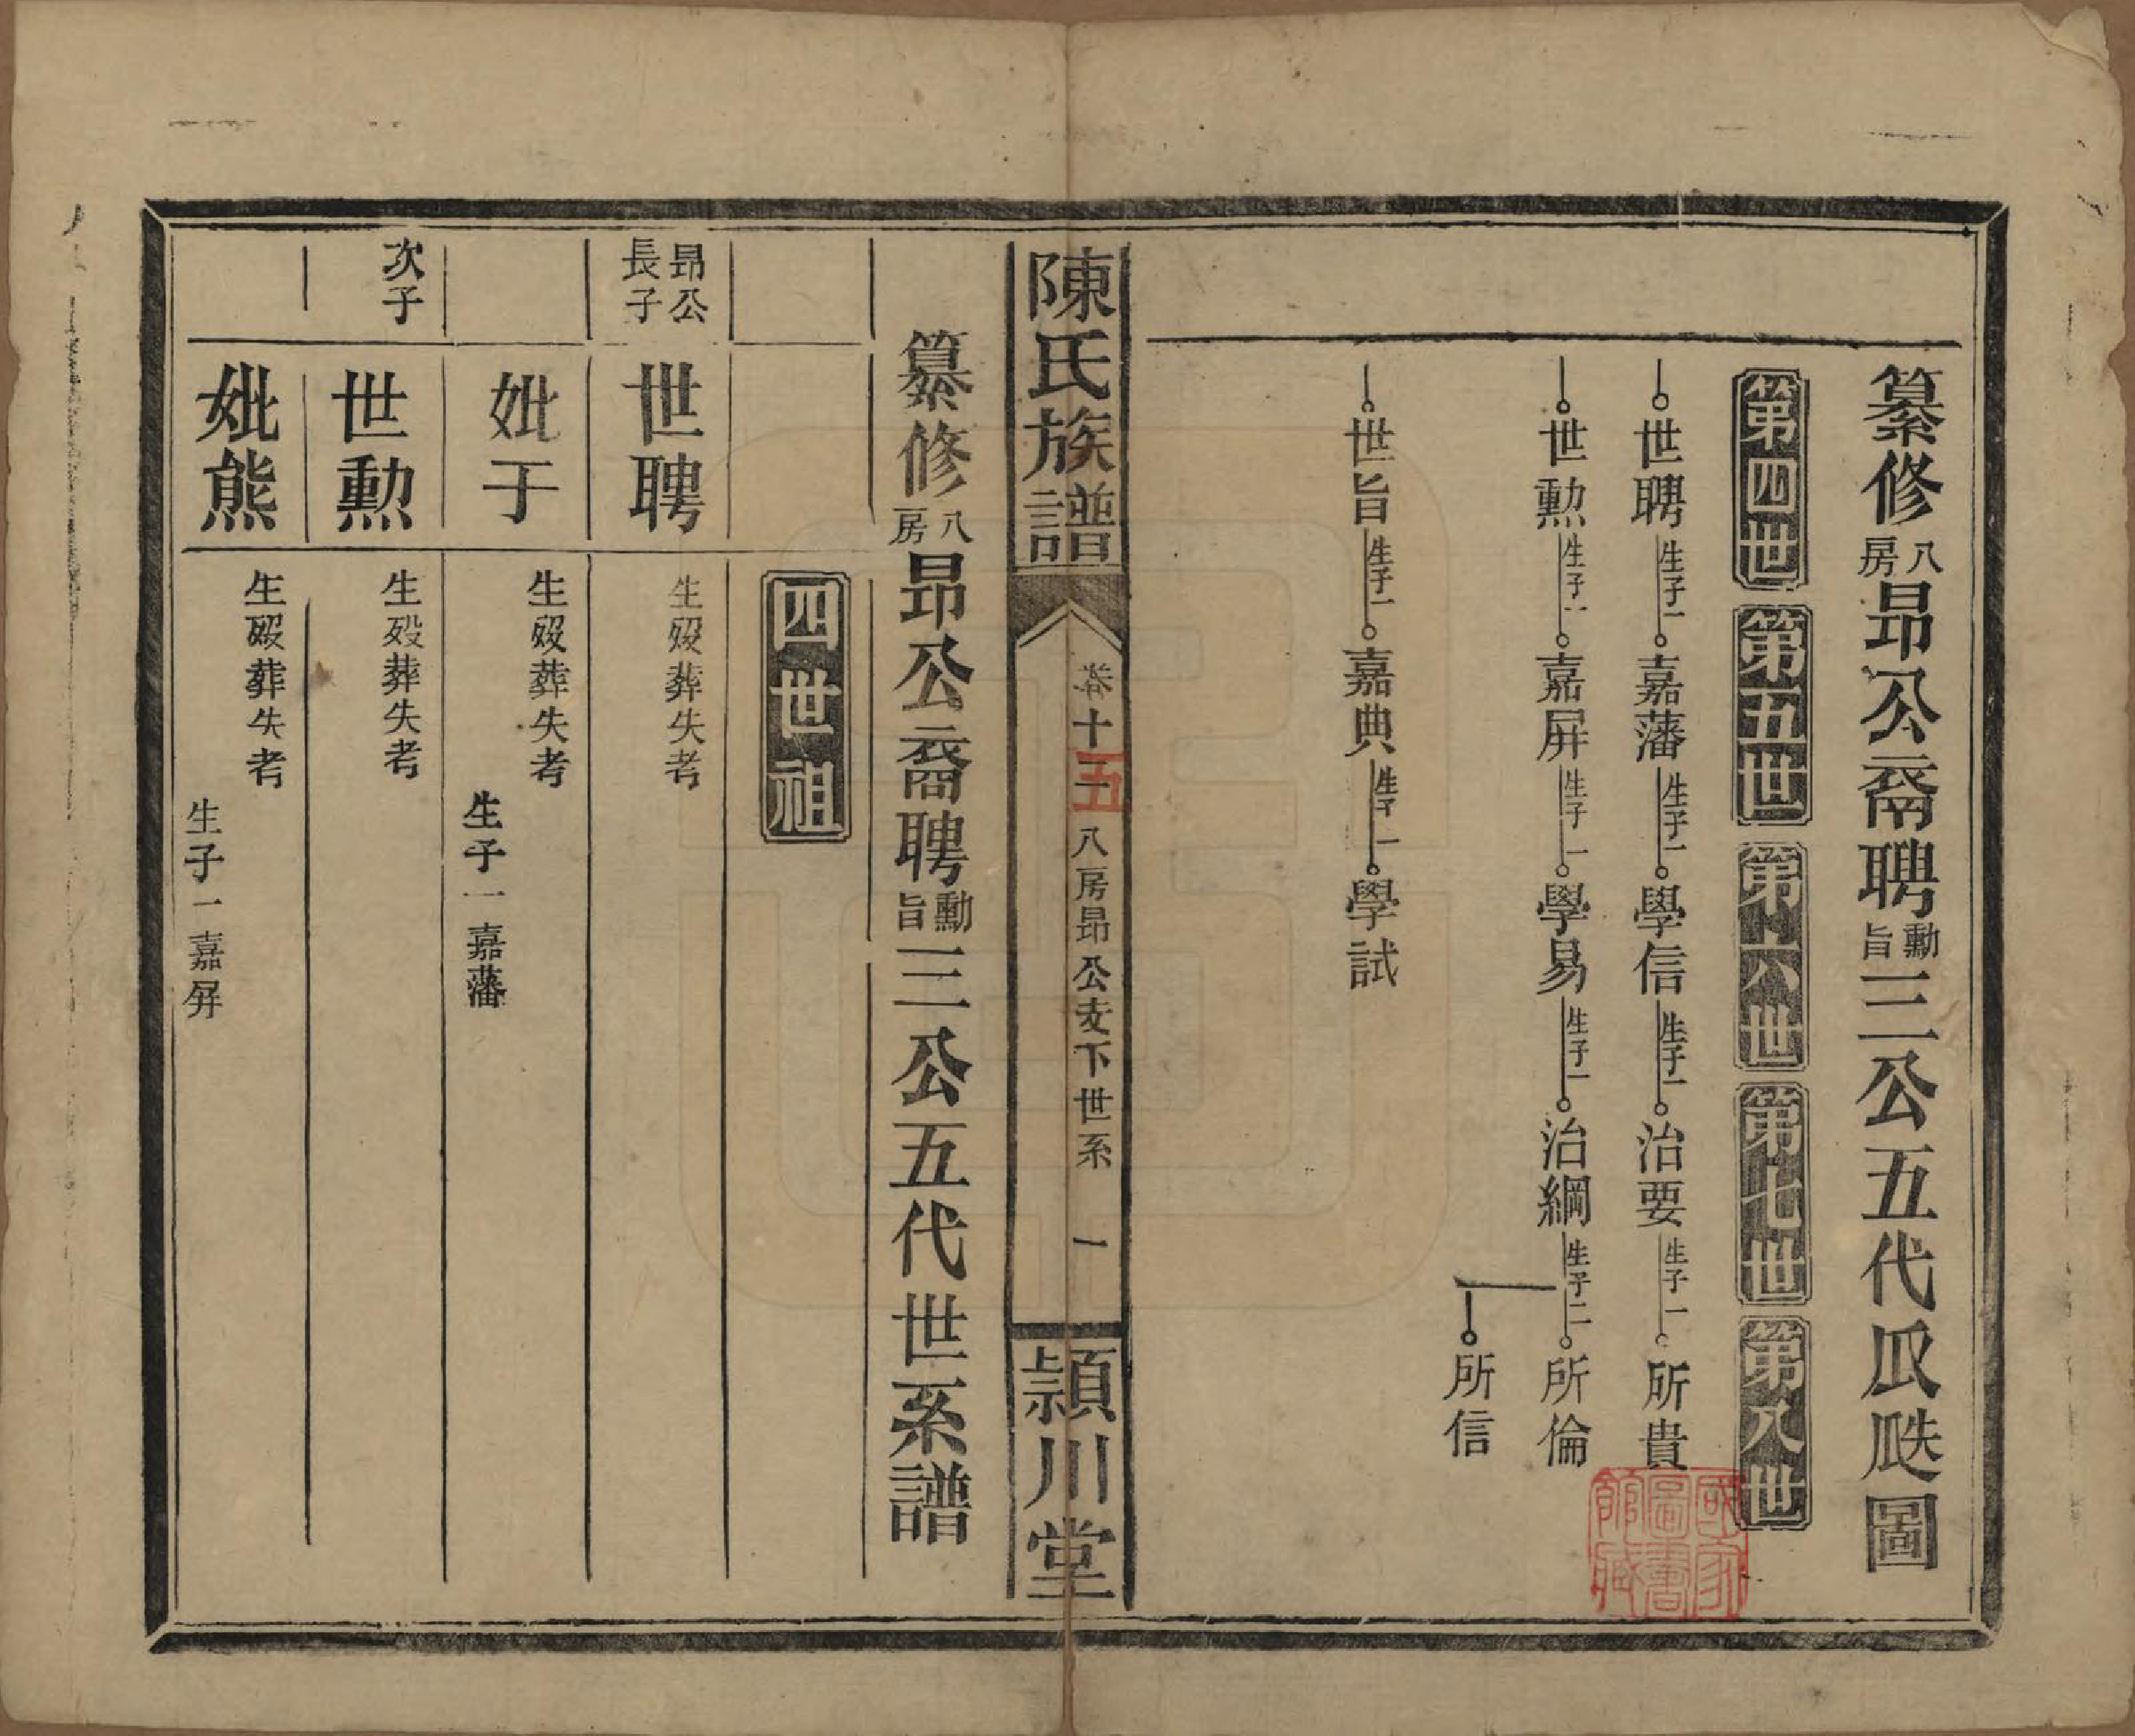 纂修八房昂公裔聘勳旨三公五代瓜瓞圖
第四世 第五世 第六世 第七世 第八世
世聘 生子一 嘉藩 生子一 學信 生子一 治要 生子一 所貴
世勲 生子一 嘉屏 生子一 學易 生子一 治綱 生子二 所倫
所信
世旨 生子一 嘉典 生子一 學試
國家圖書館藏
陳氏族譜 卷十五 八房昂公支下世系 一 潁川堂
纂修八房昂公裔聘勳旨三公五代世系譜
四世祖
昂公長子 世聘 生殁葬失考
妣于 生殁葬失考
生子一嘉藩
次子 世勲 生殁葬失考
妣熊 生殁葬失考
生子一嘉屏